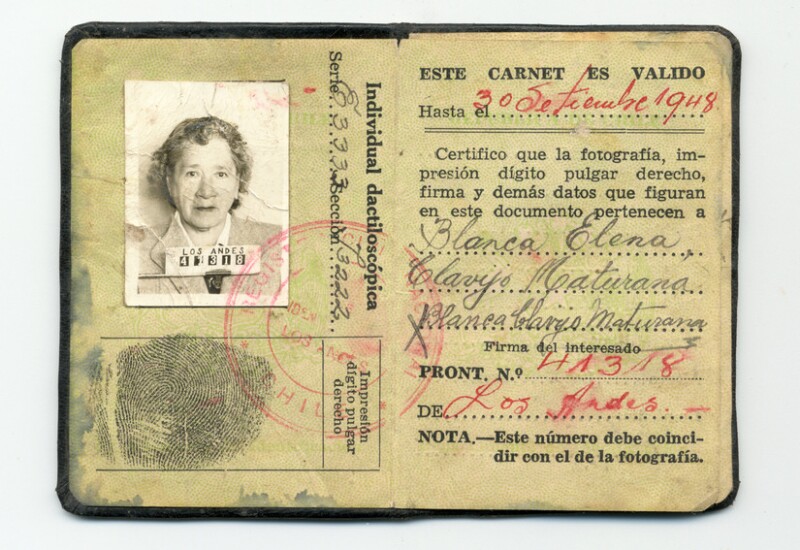 LOS ANDES
41318
Individual dactiloscópica
Serie. E 3333 Sección. I 3222
REGISTRO CIVIL
LOS ANDES
CHILE
Impresión
dígito pulgar
derecho
ESTE CARNET ES VALIDO
Hasta el 30 Setiembre 1948
Certifico que la fotografía, im-
presión dígito pulgar derecho,
firma y demás datos que figuran
en este documento pertenecen a
Blanca Elena
Clavijo Maturana
X Blanca Clavijo Maturana
Firma del interesado
PRONT. N.º 41318
DE Los Andes.-
NOTA.—Este número debe coinci-
dir con el de la fotografía.